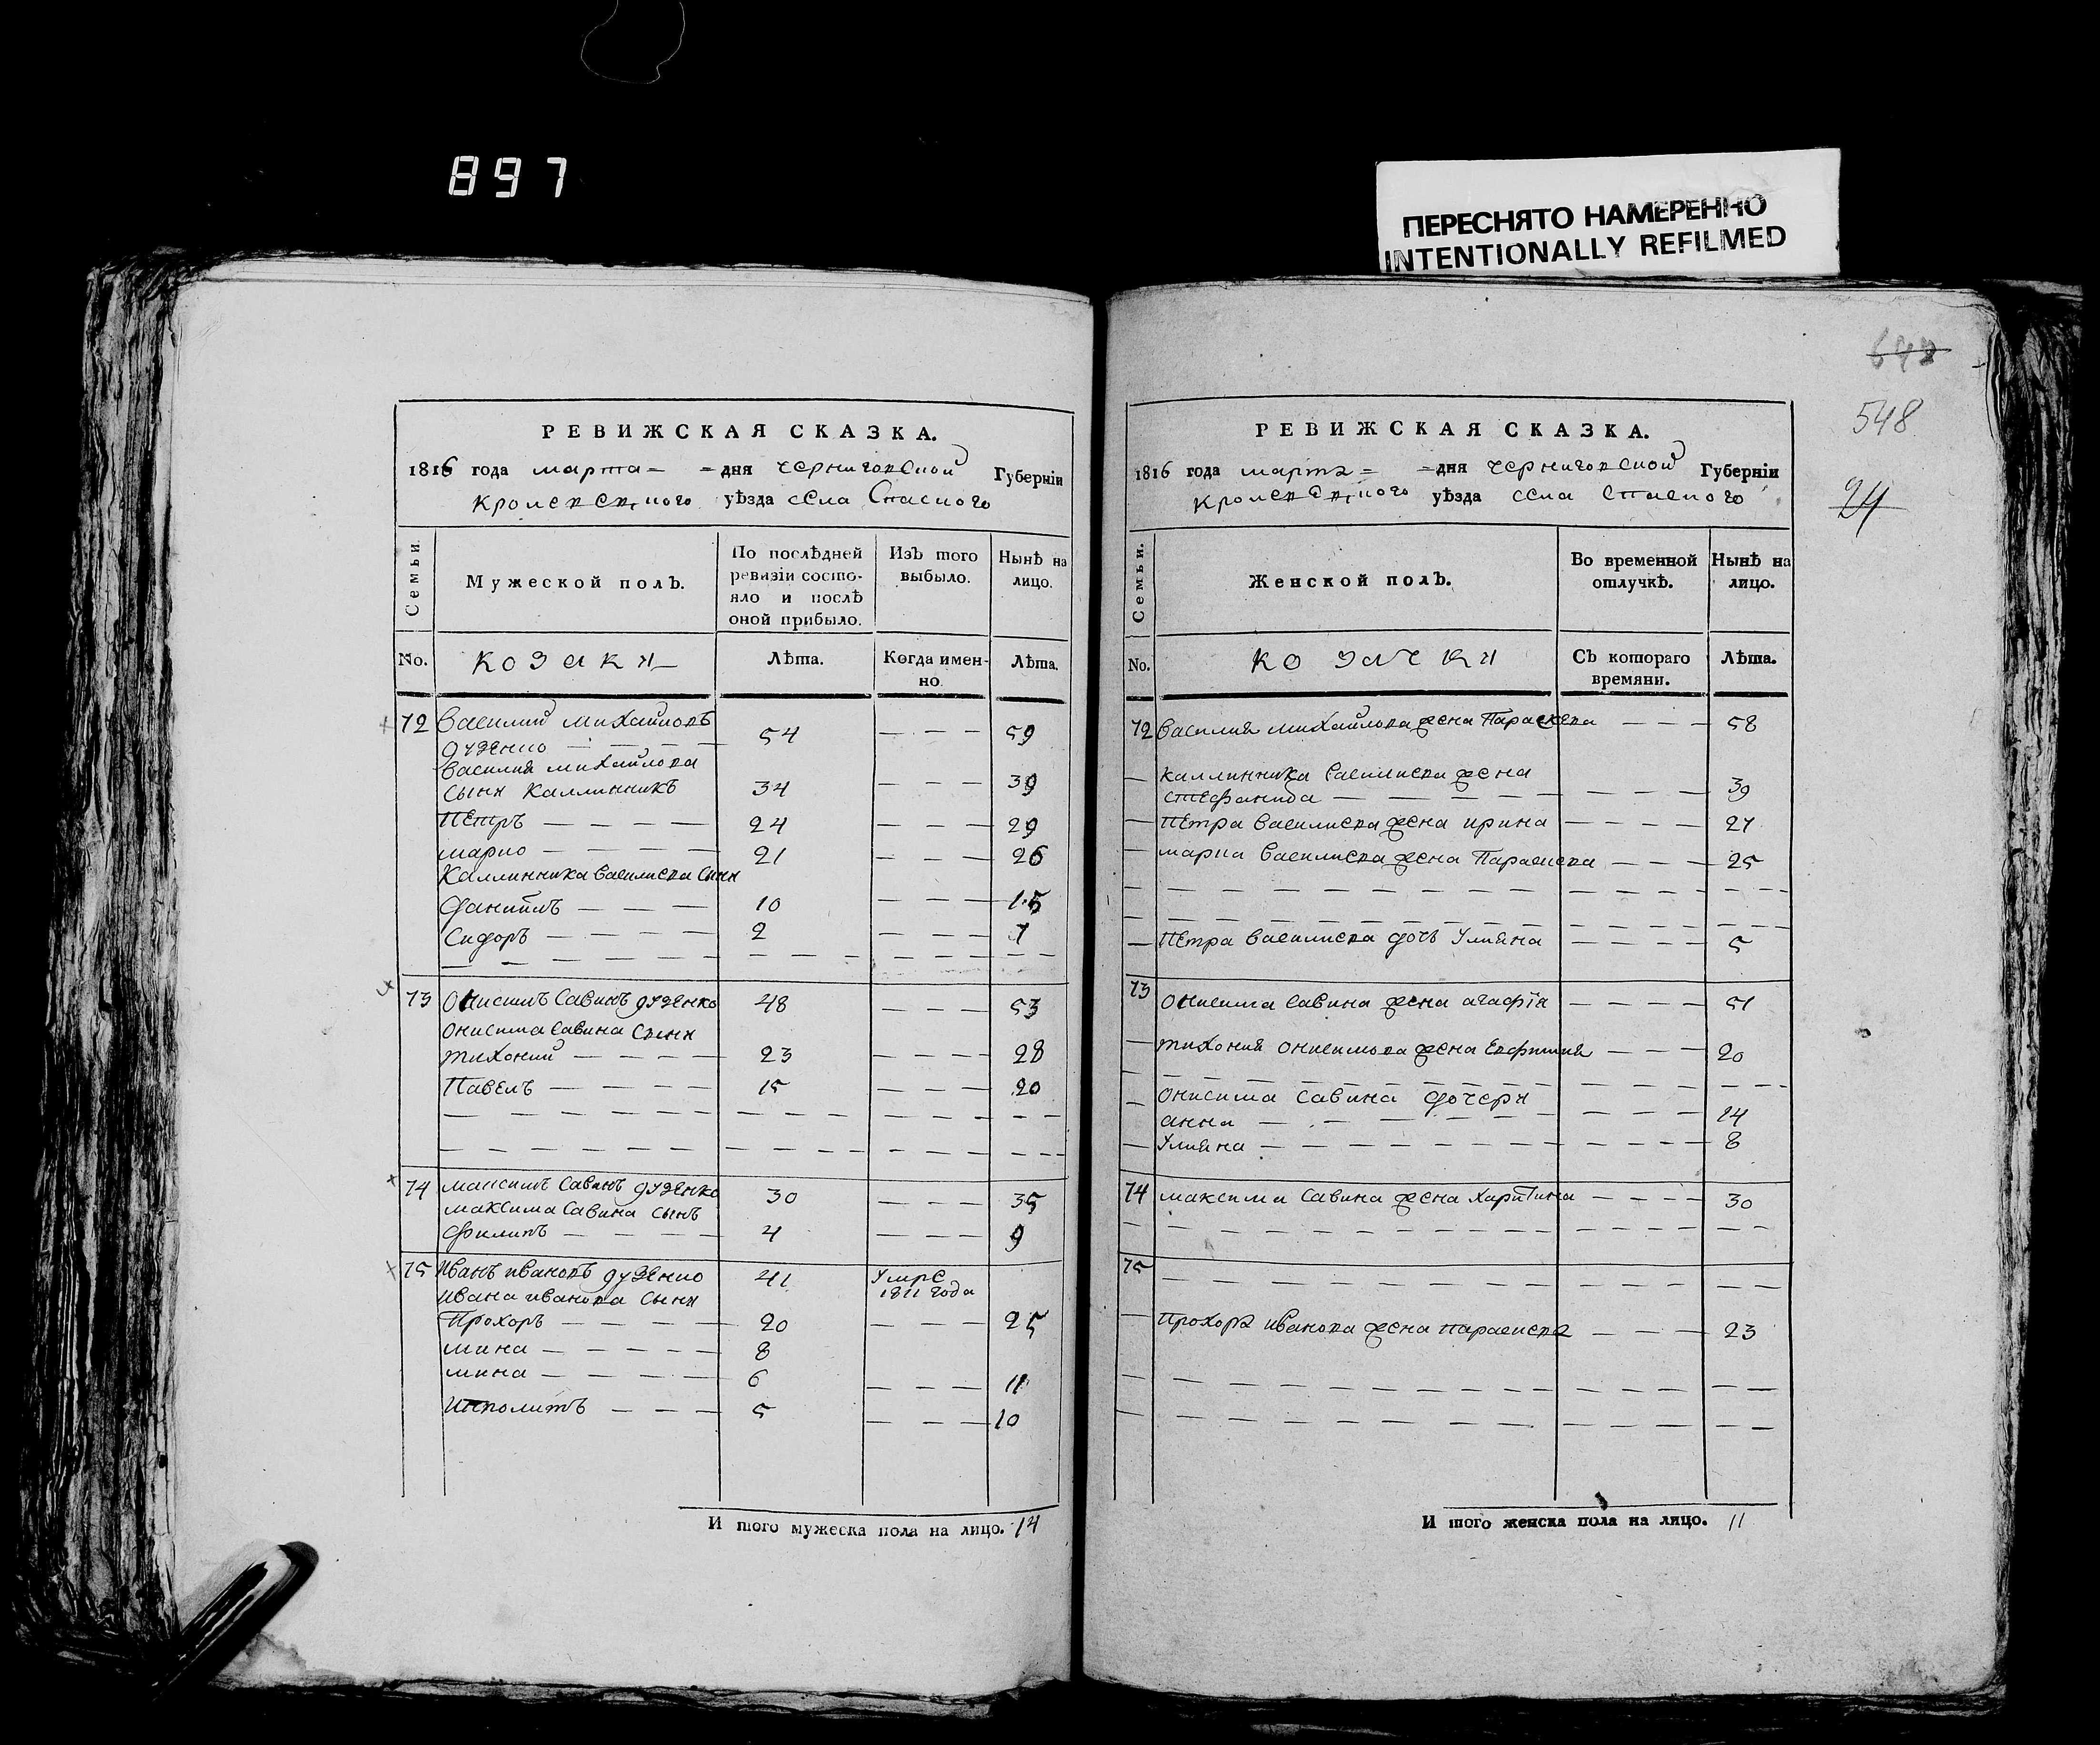 897
ПЕРЕСНЯТО НАМЕРЕННО
INTENTIONALLY REFILMED
РЕВИЖСКАЯ СКАЗКА.
1816 года марта = = дня черниговской Губерніи
кролевецкого уѣзда села Спаского
Семьи.
Мужеской полъ.
По послѣдней ревизіи состояло и послѣ оной прибыло.
Изъ того выбыло.
Нынѣ на лицо.
No.
козаки
Лѣта.
Когда именно.
Лѣта.
72 Василий михайловъ
дуденко 54 59
Василия михайлова
сыни Каллинникъ 34 39
Петръ 24 29
марко 21 26
Каллинника Василиева сыни
Даниилъ 10 15
Сидоръ 2 7
73 Онисимъ Савинъ дуденко 48 53
Онисима Савина сыни
тихоний 23 28
Павелъ 15 20
74 максимъ Савинъ дуденко 30 35
максима Савина сынъ
Филипъ 4 9
75 Иванъ ивановъ дуденко 41 умре 1811 года
Ивана иванова сыни
Прохоръ 20 25
мина 8
мина 6 11
Иполитъ 5 10
И того мужеска пола на лицо. 14
648
548
24
РЕВИЖСКАЯ СКАЗКА.
1816 года марта = = дня черниговской Губерніи
кролевецкого уѣзда села спаского
Семьи.
Женской полъ.
Во временной отлучкѣ.
Нынѣ на лицо.
No.
козачки
Съ котораго времяни.
Лѣта.
72 Василия михайлова жена Параскева 58
Каллинника Василиева жена
стефанида 39
Петра Василиева жена ирина 27
марка Василиева жена Параскева 25
Петра Василиева дочь Улияна 5
73 Онисима Савина жена агафія 51
тихония онисимова жена Евфимия 20
Онисима Савина дочери
анна 14
Улияна 8
74 максима Савина жена Харитина 30
75
Прохора иванова жена параскева 23
И того женска пола на лицо. 11